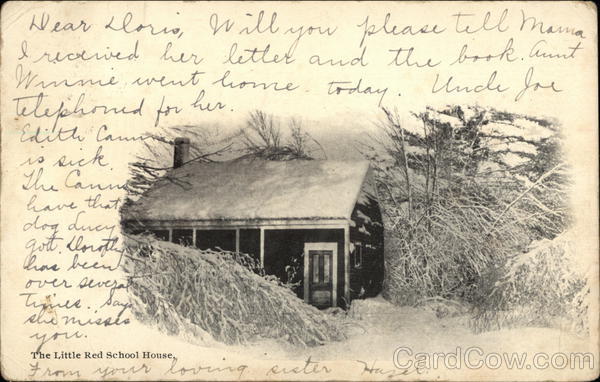 Dear Doris, Will you please tell Mama
I received her letter and the book. Aunt
Winnie went home today. Uncle Joe
telephoned for her.
Edith Cann
is sick.
The Canns
have that
dog Lucy
got. Dorothy
has been
over several
times. Says
she misses
you.
The Little Red School House.
From your loving sister
CardCow.com